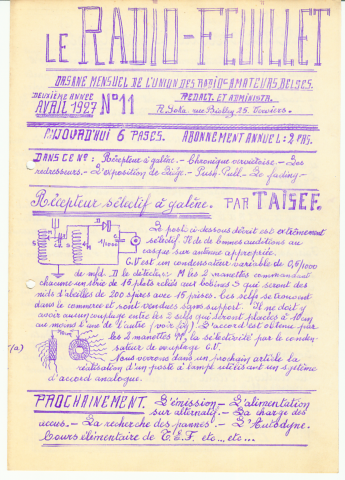 LE RADIO-FEUILLET
ORGANE MENSUEL DE L'UNION DES RADIO-AMATEURS BELGES.
DEUXIÈME ANNÉE
AVRIL 1927 N°11
REDACT. ET ADMINISTR.
rue 25. Verviers.
AUJOURD'HUI 6 PAGES. ABONNEMENT ANNUEL:
DANS CE N°: Récepteur à galène.- Chronique verviétoise.- Les
redresseurs.- L'exposition de Liège.- Push-Pull.- Le fading.-
Récepteur sélectif à galène. PAR TAISEF.
Le poste ci-dessous décrit est extrêmement
sélectif. Il de bonnes auditions au
casque sur antenne appropriée.
C.V est un condensateur variable de 0,5/1000
de mfd. D le détecteur. M les 2 manettes commandant
chacune une série de 16 plots reliés aux bobines S qui seront des
nids d'abeilles de 200 spires avec 15 prises. Ces selfs se trouvent
dans le commerce et sont vendues sans support. Il ne doit y
avoir aucun couplage entre les 2 selfs qui seront placées à 10 cm
au moins l'une de l'autre (voir (a)). L'accord est obtenu par
les 2 manettes M, la sélectivité par le conden-
sateur de couplage C.V.
(a)
Nous verrons dans un prochain article la
réalisation d'un poste à lampe utilisant un système
d'accord analogue.
PROCHAINEMENT. L'émission - L'alimentation
sur alternatif. - La charge des
accus. - La recherche des pannes. - L'Autodyne.
Cours élémentaire de T.S.F. etc... etc...